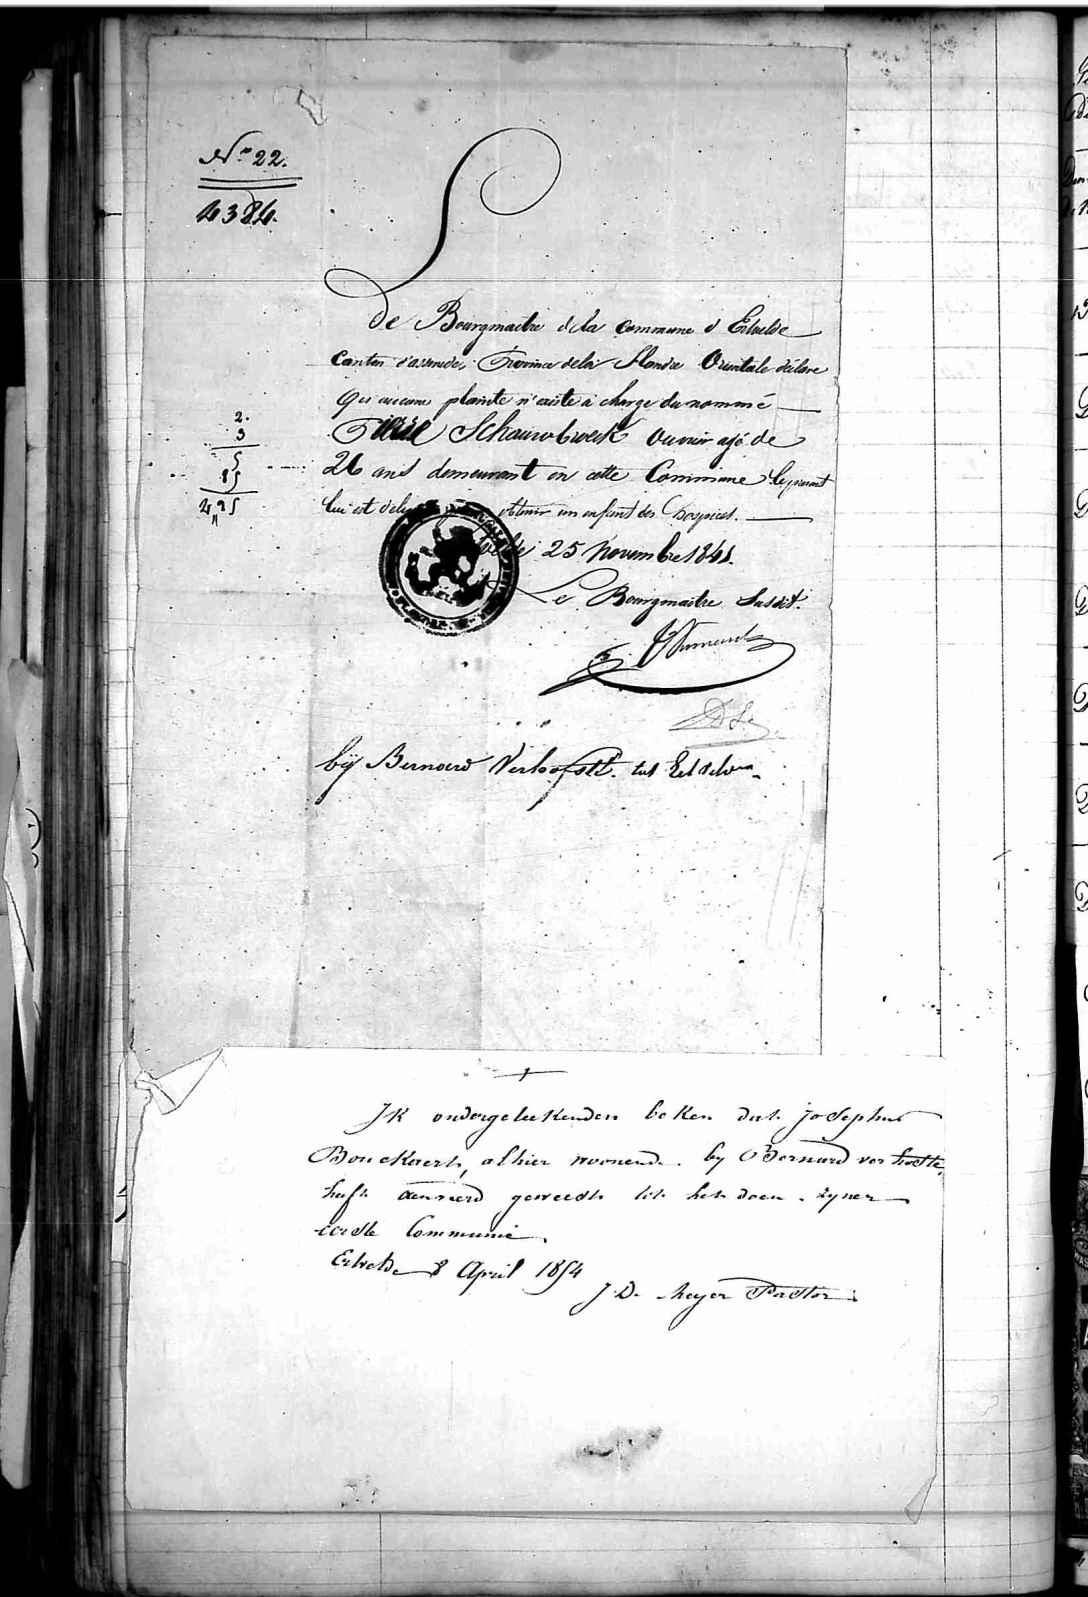 No 22.
4384.
De Bourgmaitre de la commune d'Ertvelde
Canton d'assenede, Province dela Flandre Orientale déclare
Que aucune plainte n'existe à charge du nommé
2.
3
5
Schauwbroeck Ouvrier agé de
26 ans demeurant en cette Commune le présent
85
lui est obtenir un enfant des hospices.
25 Novembre 1841.
Le Bourgmaitre Susdit.
bÿ Bernard Verhofste. tot
Ik ondergeteekenden beken dat Josephus
Bouckaert, alhier woonende by Bernard verhofste,
heeft aenveerd geweest tot het doen zyner
eerste Communie
Ertvelde 8 April 1854
J. D. Meyer Pastor